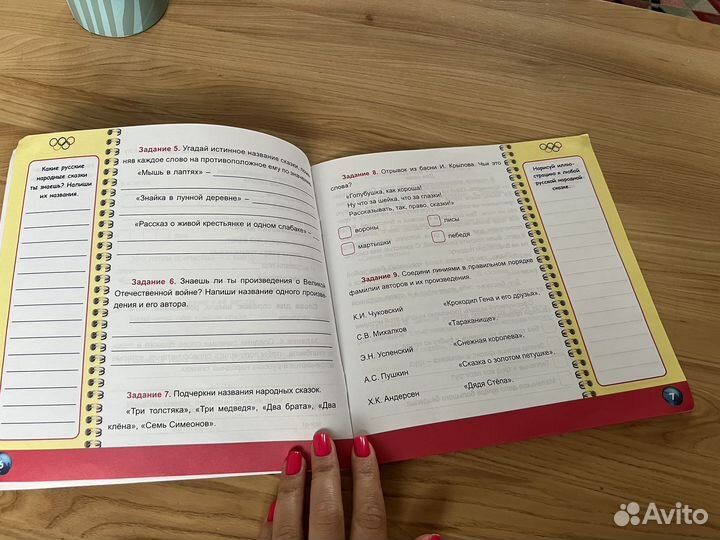 Какие русские
народные сказки
ты знаешь? Напиши
их названия.
Задание 5. Угадай истинное название сказки,
няв каждое слово на противоположное ему по
«Мышь в лаптях» –
«Знайка в лунной деревне» –
«Рассказ о живой крестьянке и одном слабаке» –
Задание 6. Знаешь ли ты произведения о Великой
Отечественной войне? Напиши название одного произве-
дения и его автора.
Задание 7. Подчеркни названия народных сказок.
«Три толстяка», «Три медведя», «Два брата», «Два
клёна», «Семь Симеонов».
Задание 8. Отрывок из басни И. Крылова. Чьи это
слова?
«Голубушка, как хороша!
Ну что за шейка, что за глазки!
Рассказывать, так, право, сказки!»
вороны
лисы
мартышки
лебедя
Задание 9. Соедини линиями в правильном порядке
фамилии авторов и их произведения.
К.И. Чуковский «Крокодил Гена и его друзья».
С.В. Михалков «Тараканище».
Э.Н. Успенский «Снежная королева».
А.С. Пушкин «Сказка о золотом петушке».
Х.К. Андерсен «Дядя Стёпа».
Нарисуй иллю-
страцию к любой
русской народной
сказке.
7
Avito